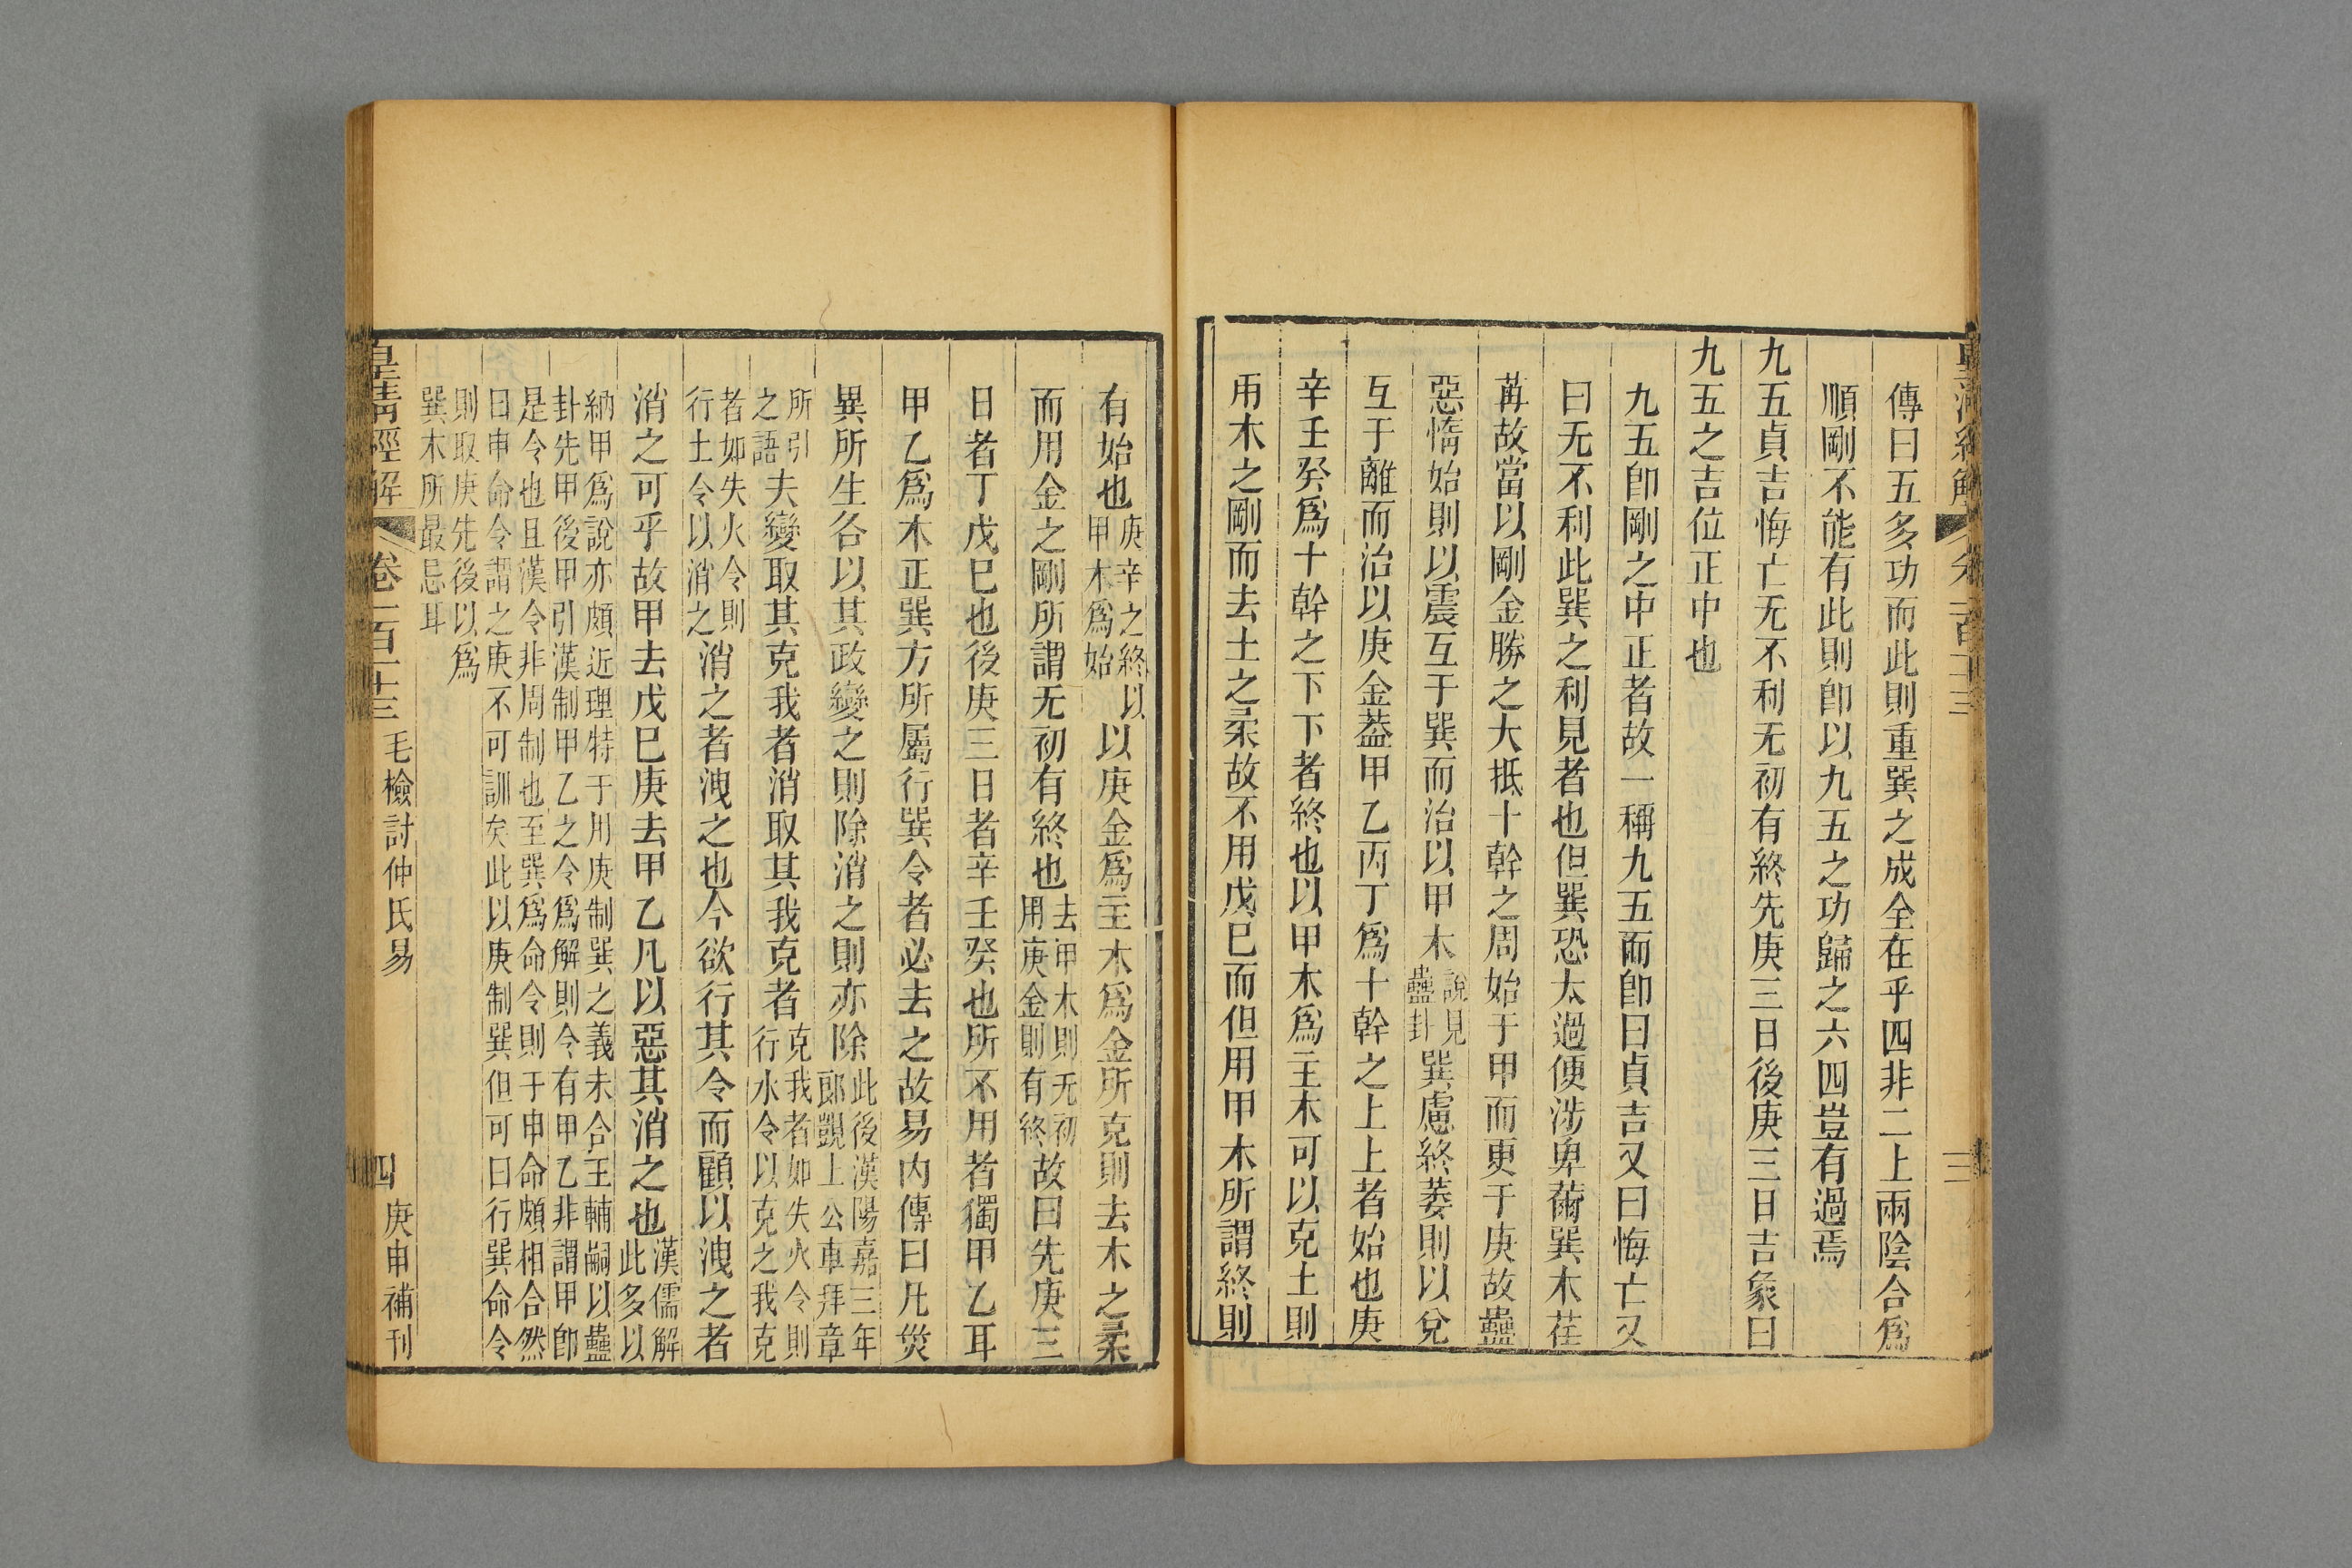 傳曰五多功而此則重巽之成全在乎四非二上兩陰合爲
順剛不能有此則卽以九五之功歸之六四豈有過焉
九五貞吉悔亡无不利无初有終先庚三日後庚三日吉象曰
九五之吉位正中也
九五卽剛之中正者故一稱九五而卽曰貞吉又曰悔亡又
曰无不利此巽之利見者也但巽恐太過便涉卑薾巽木荏
苒故當以剛金勝之大抵十幹之周始于甲而更于庚故蠱
惡惰始則以震互于巽而治以甲木說見蠱卦巽慮終萎則以兌
互于離而治以庚金葢甲乙丙丁爲十幹之上上者始也庚
辛壬癸爲十幹之下下者終也以甲木爲主木可以克土則
用木之剛而去土之柔故不用戊巳而但用甲木所謂終則
有始也庚辛之終以甲木爲始以庚金爲主木爲金所克則去木之柔
而用金之剛所謂无初有終也去甲木則无初用庚金則有終故曰先庚三
日者丁戊巳也後庚三日者辛壬癸也所不用者獨甲乙耳
甲乙爲木正巽方所屬行巽令者必去之故易內傳曰凡災
異所生各以其政變之則除消之則亦除此後漢陽嘉三年郎顗上公車拜章
所引之語夫變取其克我者消取其我克者克我者如失火令則行水令以克之我克
者如失火令則行土令以消之消之者洩之也今欲行其令而顧以洩之者
消之可乎故甲去戊巳庚去甲乙凡以惡其消之也漢儒解此多以
納甲爲說亦頗近理特于用庚制巽之義未合王輔嗣以蠱
卦先甲後甲引漢制甲乙之令爲解則令有甲乙非謂甲卽
是令也且漢令非周制也至巽爲命令則于申命頗相合然
曰申命令謂之庚不可訓矣此以庚制巽但可曰行巽命令
則取庚先後以爲
巽木所最忌耳
皇淸經解
卷一百十三
毛檢討仲氏易
四
庚申補刊